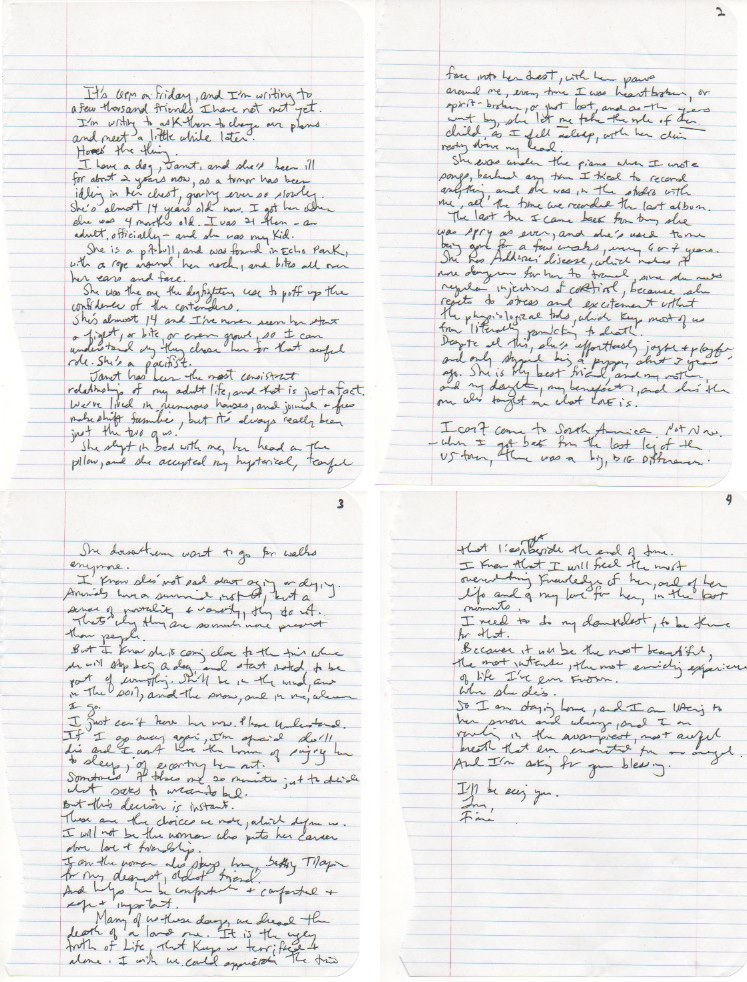 It's 6pm on Friday, and I'm writing to
a few thousand friends I have not met yet.
I'm writing to ask them to change our plans
and meet a little while later.
Here's the thing.
I have a dog, Janet, and she's been ill
for about 2 years now, as a tumor has been
idling in her chest, growing ever so slowly.
She's almost 14 years old now. I got her when
she was 4 months old. I was 21 then - an
adult, officially - and she was my kid.
She is a pitbull, and was found in Echo Park,
with a rope around her neck, and bites all over
her ears and face.
She was the one the dogfighters use to puff up the
confidence of the contenders.
She's almost 14 and I've never seen her start
a fight, or bite, or even growl, so I can
understand why they chose her for that awful
role. She's a pacifist.
Janet has been the most consistent
relationship of my adult life, and that is just a fact.
We've lived in numerous houses, and joined a few
makeshift families, but it's always really been
just the two of us.
She slept in bed with me, her head on the
pillow, and she accepted my hysterical, tearful
2
face into her chest, with her paws
around me, every time I was heartbroken, or
spirit-broken, or just lost, and as the years
went by, she let me take the role of her
child, as I fell asleep, with her chin
resting above my head.
She was under the piano when I wrote
songs, barked any time I tried to record
anything and she was in the studio with
me, all the time we recorded the last album.
The last time I came back from tour, she
was spry as ever, and she's used to me
being gone for a few weeks, every 6 or 7 years.
She has Addison's disease, which makes it
more dangerous for her to travel, since she needs
regular injections of cortisol, because she
reacts to stress and excitement without
the physiological tools, which keep most of us
from literally panicking to death.
Despite all this, she's effortlessly joyful & playful
and only stopped being a puppy about 3 years
ago. She is my best friend, and my mother,
and my daughter, my benefactor, and she's the
one who taught me what love is.
I can't come to South America. Not Now.
- when I got back from the last leg of the
US tour, there was a big, BIG Difference.
3
She doesn't even want to go for walks
anymore.
I know she's not sad about aging or dying.
Animals have a survival instinct, but a
sense of mortality & vanity, they do not.
That's why they are so much more present
than people.
But I know she is coming close to the time where
she will stop being a dog and start instead to be
part of everything. She'll be in the wind, and
in the soil, and the snow, and in me, wherever
I go.
I just can't leave her now. Please Understand.
If I go away again, I'm afraid she'll
die and I won't have the honor of singing her
to sleep, of escorting her out.
Sometimes it takes me 20 minutes just to decide
what socks to wear to bed.
But this decision is instant.
These are the choices we make, which define us.
I will not be the woman who puts her career
above love & friendship.
I am the woman who stays home, baking Tilapia
for my dearest, oldest friend.
And helps her be comfortable & comforted &
safe & important.
Many of us these days, we dread the
death of a loved one. It is the ugly
truth of Life, that keeps us terrified &
alone. I wish we could appreciate the time
4
that lies right beside the end of time.
I Know that I will feel the most
overwhelming Knowledge of her, and of her
life and of my love for her, in the last
moments.
I need to do my damnedest, to be there
for that.
Because it will be the most beautiful,
the most intense, the most enriching experience
of life I've ever known.
When she dies.
So I am staying home, and I am listening to
her snore and wheeze, and I am
reveling in the swampiest, most awful
breath that ever emanated from an angel.
And I'm asking for your blessing.
I'll be seeing you.
Love,
Fiona